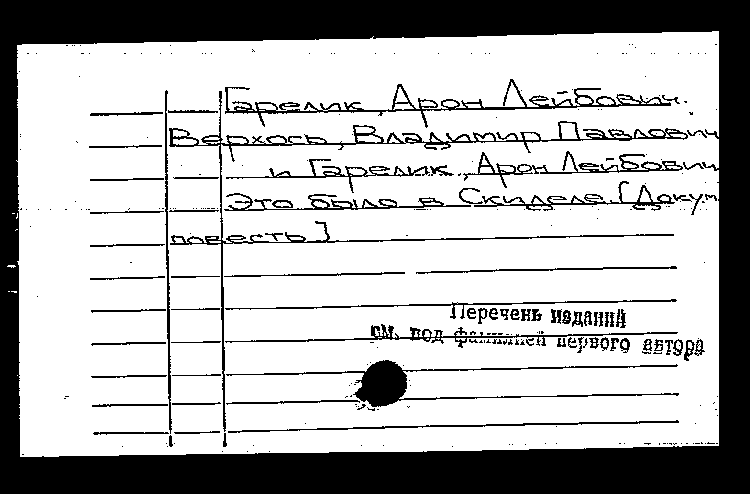 Гарелик, Арон Лейбович.
Верхось, Владимир Павлович
и Гарелик, Арон Лейбович
Это было в Скиделе. [Докум
повесть]
Перечень изданий
см. под фамилией первого автора